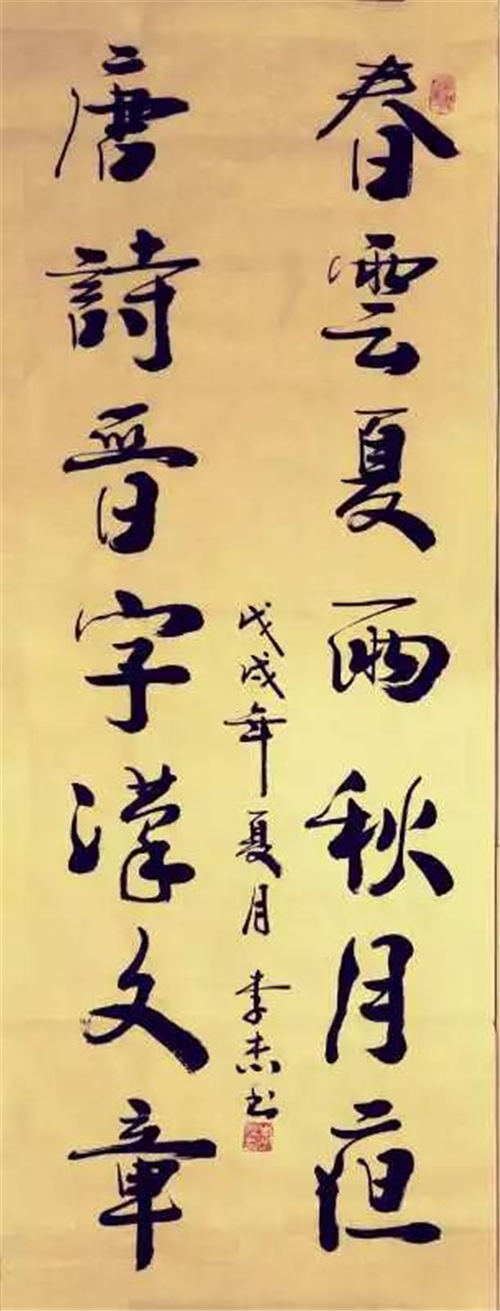 春雲夏雨秋月亱
唐詩晉字漢文章
戊戌年夏月 李杰书